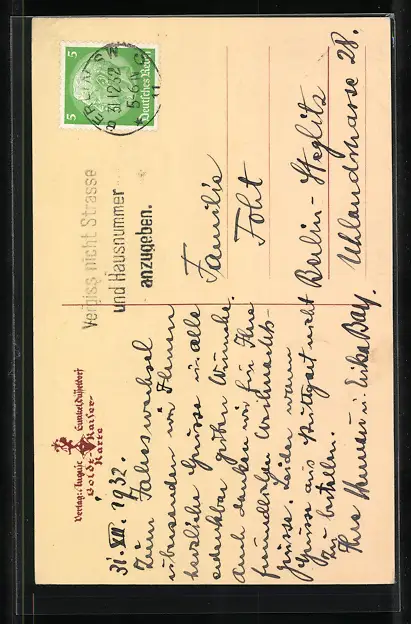 Verlag: August Gunkel, Düsseldorf
Goldt-Kaiser-
Karte
31. XII. 1932.
Zum Jahreswechsel
übersenden wir Ihnen
herzliche Grüsse u. alle
erdenkbar guten Wünsche.
Auch danken wir für Ihre
freundlichen Weihnachts-
grüsse. Leider waren
Grüsse aus Stuttgart nicht
zu bestellen.
Ihre u. Erika Bay.
Vergiss nicht Strasse
und Hausnummer
anzugeben.
5 Deutsches Reich 5
BERLIN
31.12.32
5-6 N
Familie
Foht
Berlin-Steglitz
Uhlandstrasse 28.